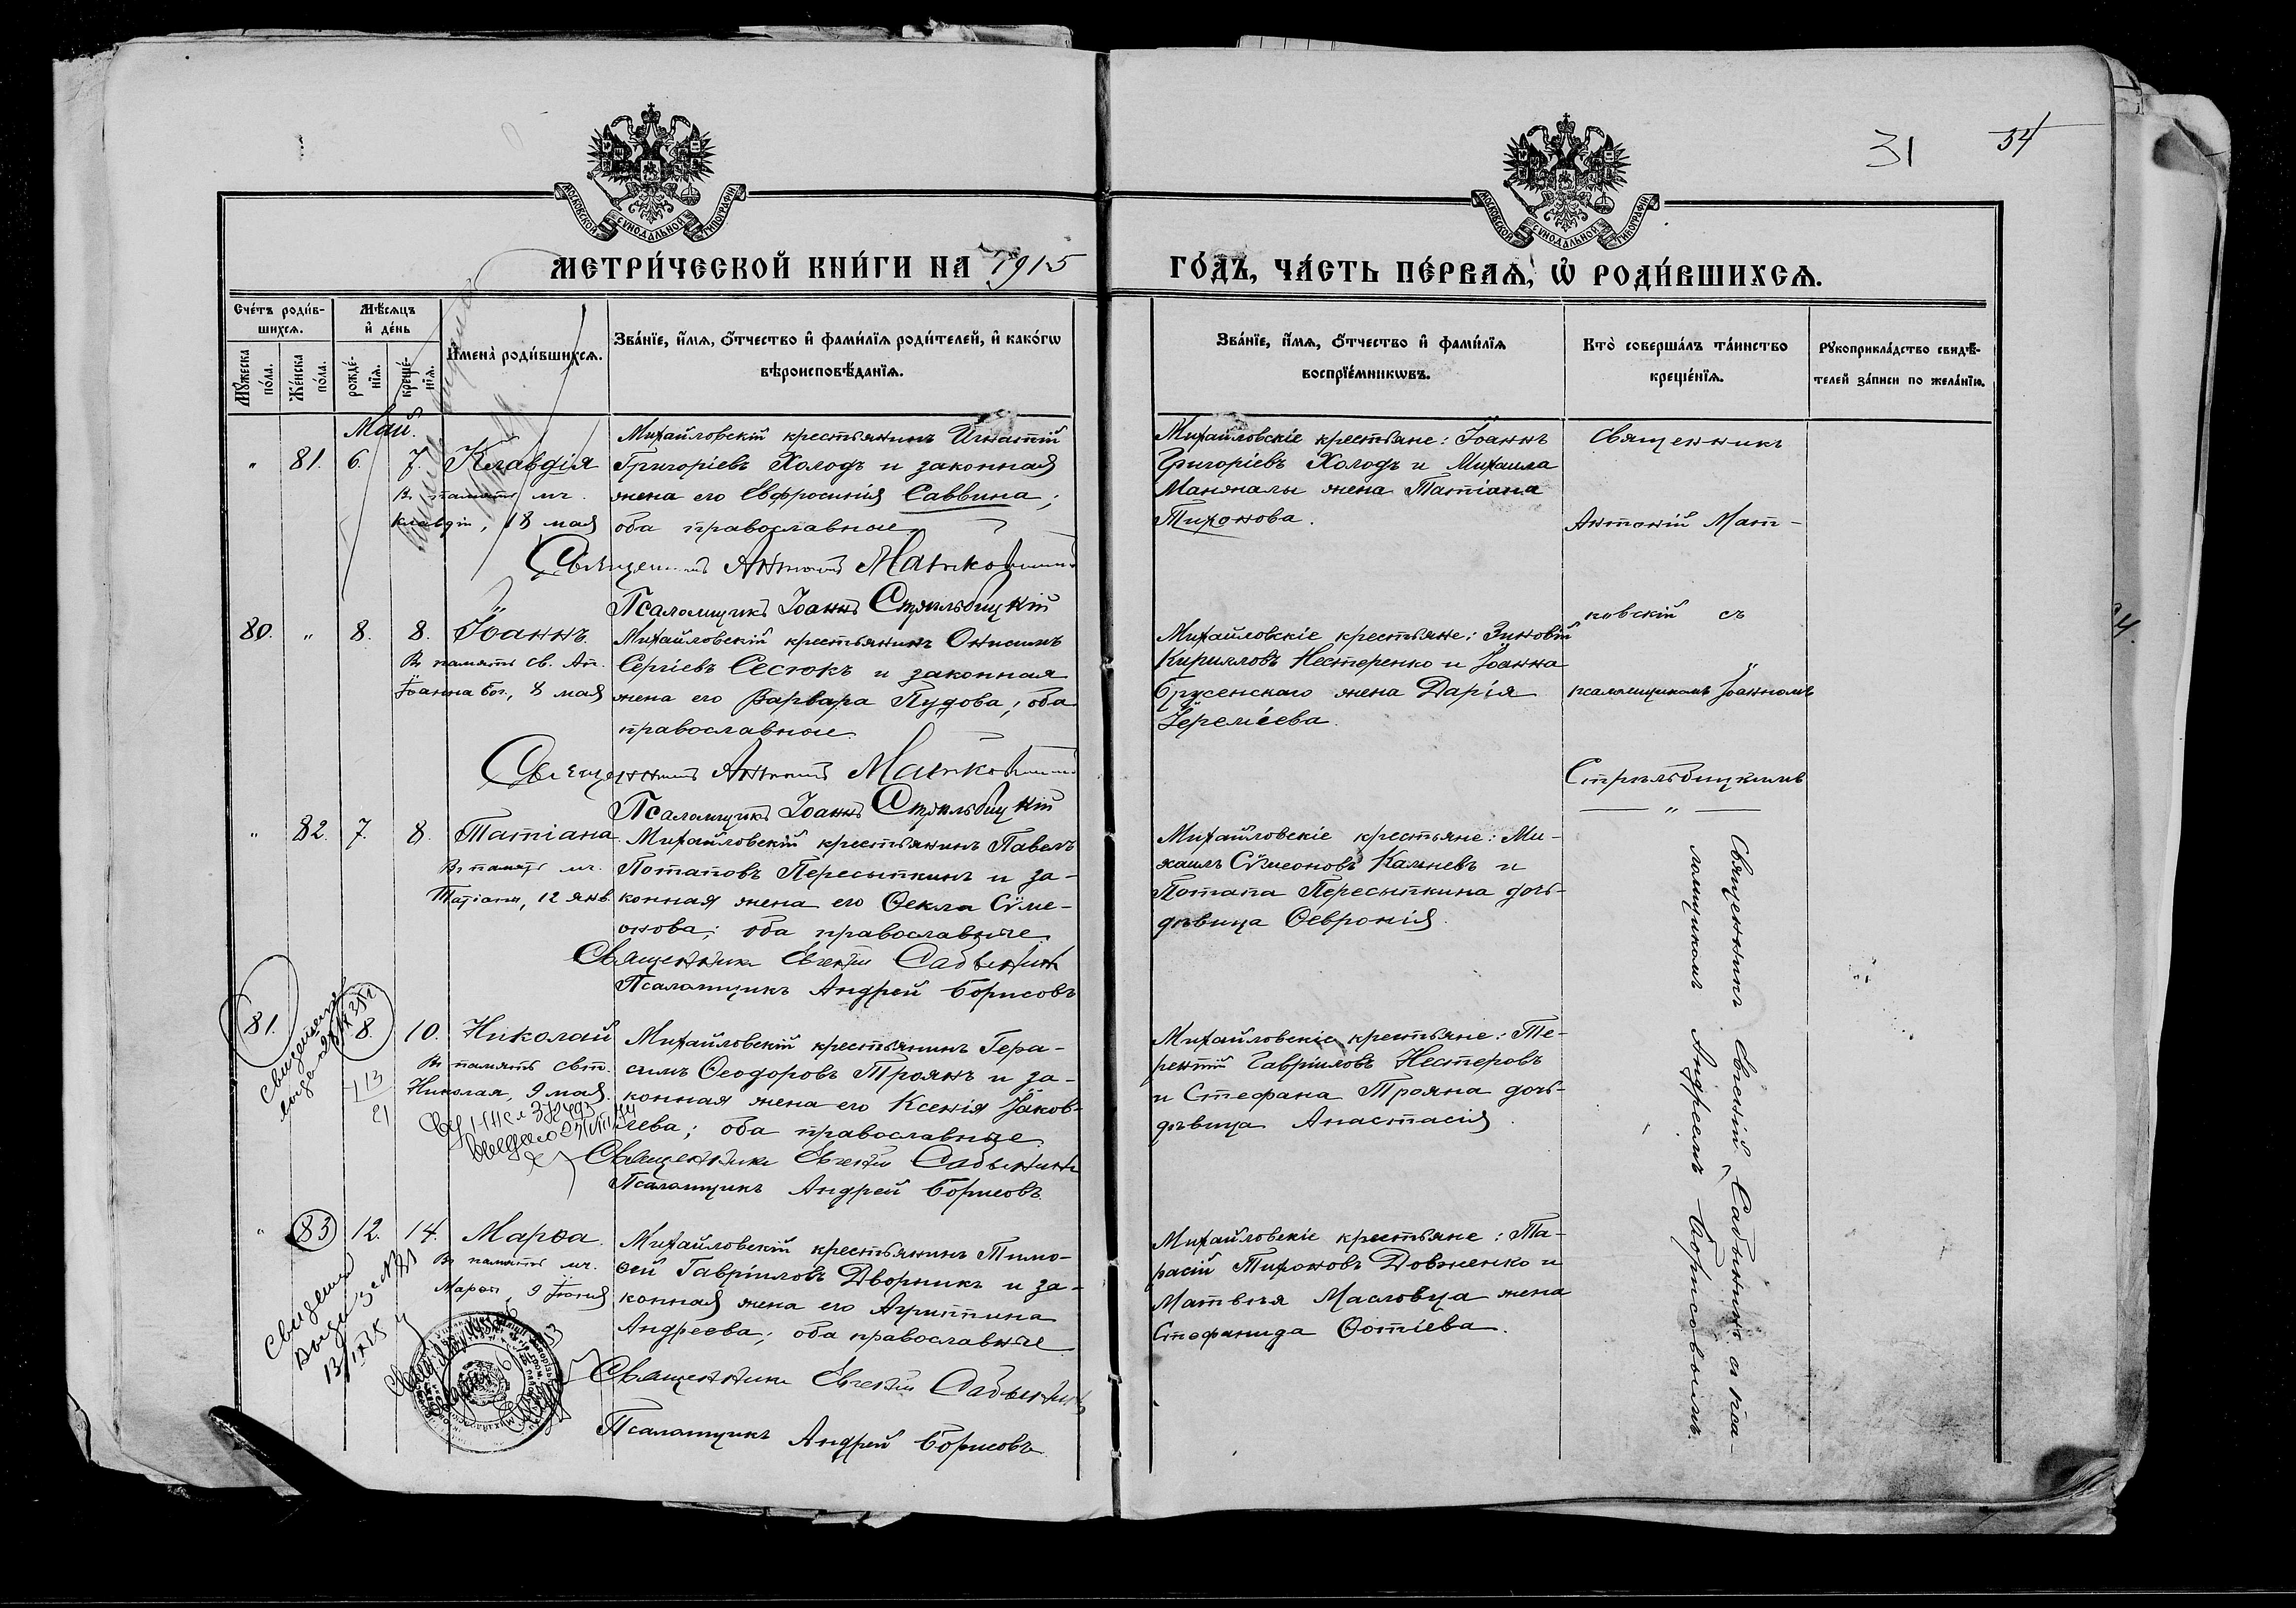 31 34
МОСКОВСКОЙ СѴНОДАЛЬНОЙ ТИПОГРАФІИ
МОСКОВСКОЙ СѴНОДАЛЬНОЙ ТИПОГРАФІИ
МЕТРИ́ЧЕСКОЙ КНИ́ГИ НА 1915
ГО́ДЪ, ЧА́СТЬ ПЕ́РВАѦ, Ѡ҆ РОДИ́ВШИХСѦ.
Сче́тъ роди́в-
шихсѧ.
Мꙋ́жеска по́ла.
Же́нска по́ла.
Мѣ́сѧцъ
и҆ де́нь
рожде́-
нїѧ.
креще́-
нїѧ.
И҆мена̀ роди́вшихсѧ.
Зва́нїе, и҆́мѧ, ѻ҆́тчество и҆ фами́лїѧ роди́телей, и҆ како́гѡ
вѣроисповѣ́данїѧ.
Зва́нїе, и҆́мѧ, ѻ҆́тчество и҆ фами́лїѧ
воспрїе́мникѡвъ.
Кто̀ соверша́лъ та́инство
креще́нїѧ.
Рꙋкоприкла́дство свидѣ́-
телей за́писи по жела́нїю.
Май.
" 81. 6. 7. Клавдія
В память мч.
Клавдіи, 18 мая
Михайловскій крестьянинъ Игнатій
Григоріевъ Холодъ и законная
жена его Евфросинія Саввина;
оба православные.
Священникъ Антоній Матковскій
Псаломщикъ Іоаннъ Стрѣльбицкій
Михайловскіе крестьяне: Іоаннъ
Григоріевъ Холодъ и Михаила
Манжалы жена Татіана
Тихонова.
Священникъ
Антоній Мат-
ковскій съ
псаломщикомъ Іоанномъ
Стрѣльбицкимъ
— " —
80. " 8. 8. Іоаннъ.
В память св. Ап.
Іоанна Бог., 8 мая
Михайловскій крестьянинъ Онисимъ
Сергіевъ Сестюкъ и законная
жена его Варвара Пудова; оба
православные.
Священникъ Антоній Матковскій
Псаломщикъ Іоаннъ Стрѣльбицкій
Михайловскіе крестьяне: Зиновій
Кирилловъ Нестеренко и Іоанна
Брусенскаго жена Дарія
Іереміева.
" 82. 7. 8. Татіана
В память мч.
Татіаны, 12 янв.
Михайловскій крестьянинъ Павелъ
Потаповъ Пересыпкинъ и за-
конная жена его Ѳекла Сѵме-
онова; оба православные.
Священникъ Евгеній Садынинъ
Псаломщикъ Андрей Борисовъ
Михайловскіе крестьяне: Ми-
хаилъ Сѵмеоновъ Калневъ и
Потапа Пересыпкина дочь-
дѣвица Ѳевронія.
Священникъ Евгеній Садынинъ съ пса-
ломщикомъ Андреемъ Борисовымъ.
81. 8. 10. Николай
В память свт.
Николая, 9 мая.
Михайловскій крестьянинъ Гера-
симъ Ѳеодоровъ Троянъ и за-
конная жена его Ксенія Іаков-
лева; оба православные.
Священникъ Евгеній Садынинъ
Псаломщикъ Андрей Борисовъ
Михайловскіе крестьяне: Те-
рентій Гавріиловъ Нестеровъ
и Стефана Трояна дочь-
дѣвица Анастасія.
" 83 12. 14. Марѳа.
В память мч.
Марѳы, 9 Іюня
Михайловскій крестьянинъ Тимо-
ѳей Гавріиловъ Дворникъ и за-
конная жена его Агриппина
Андреева; оба православные
Священникъ Евгеній Садынинъ
Псаломщикъ Андрей Борисовъ.
Михайловскіе крестьяне: Та-
расій Тихоновъ Довженко и
Матвѣя Масловца жена
Стефанида Ѳотіева.